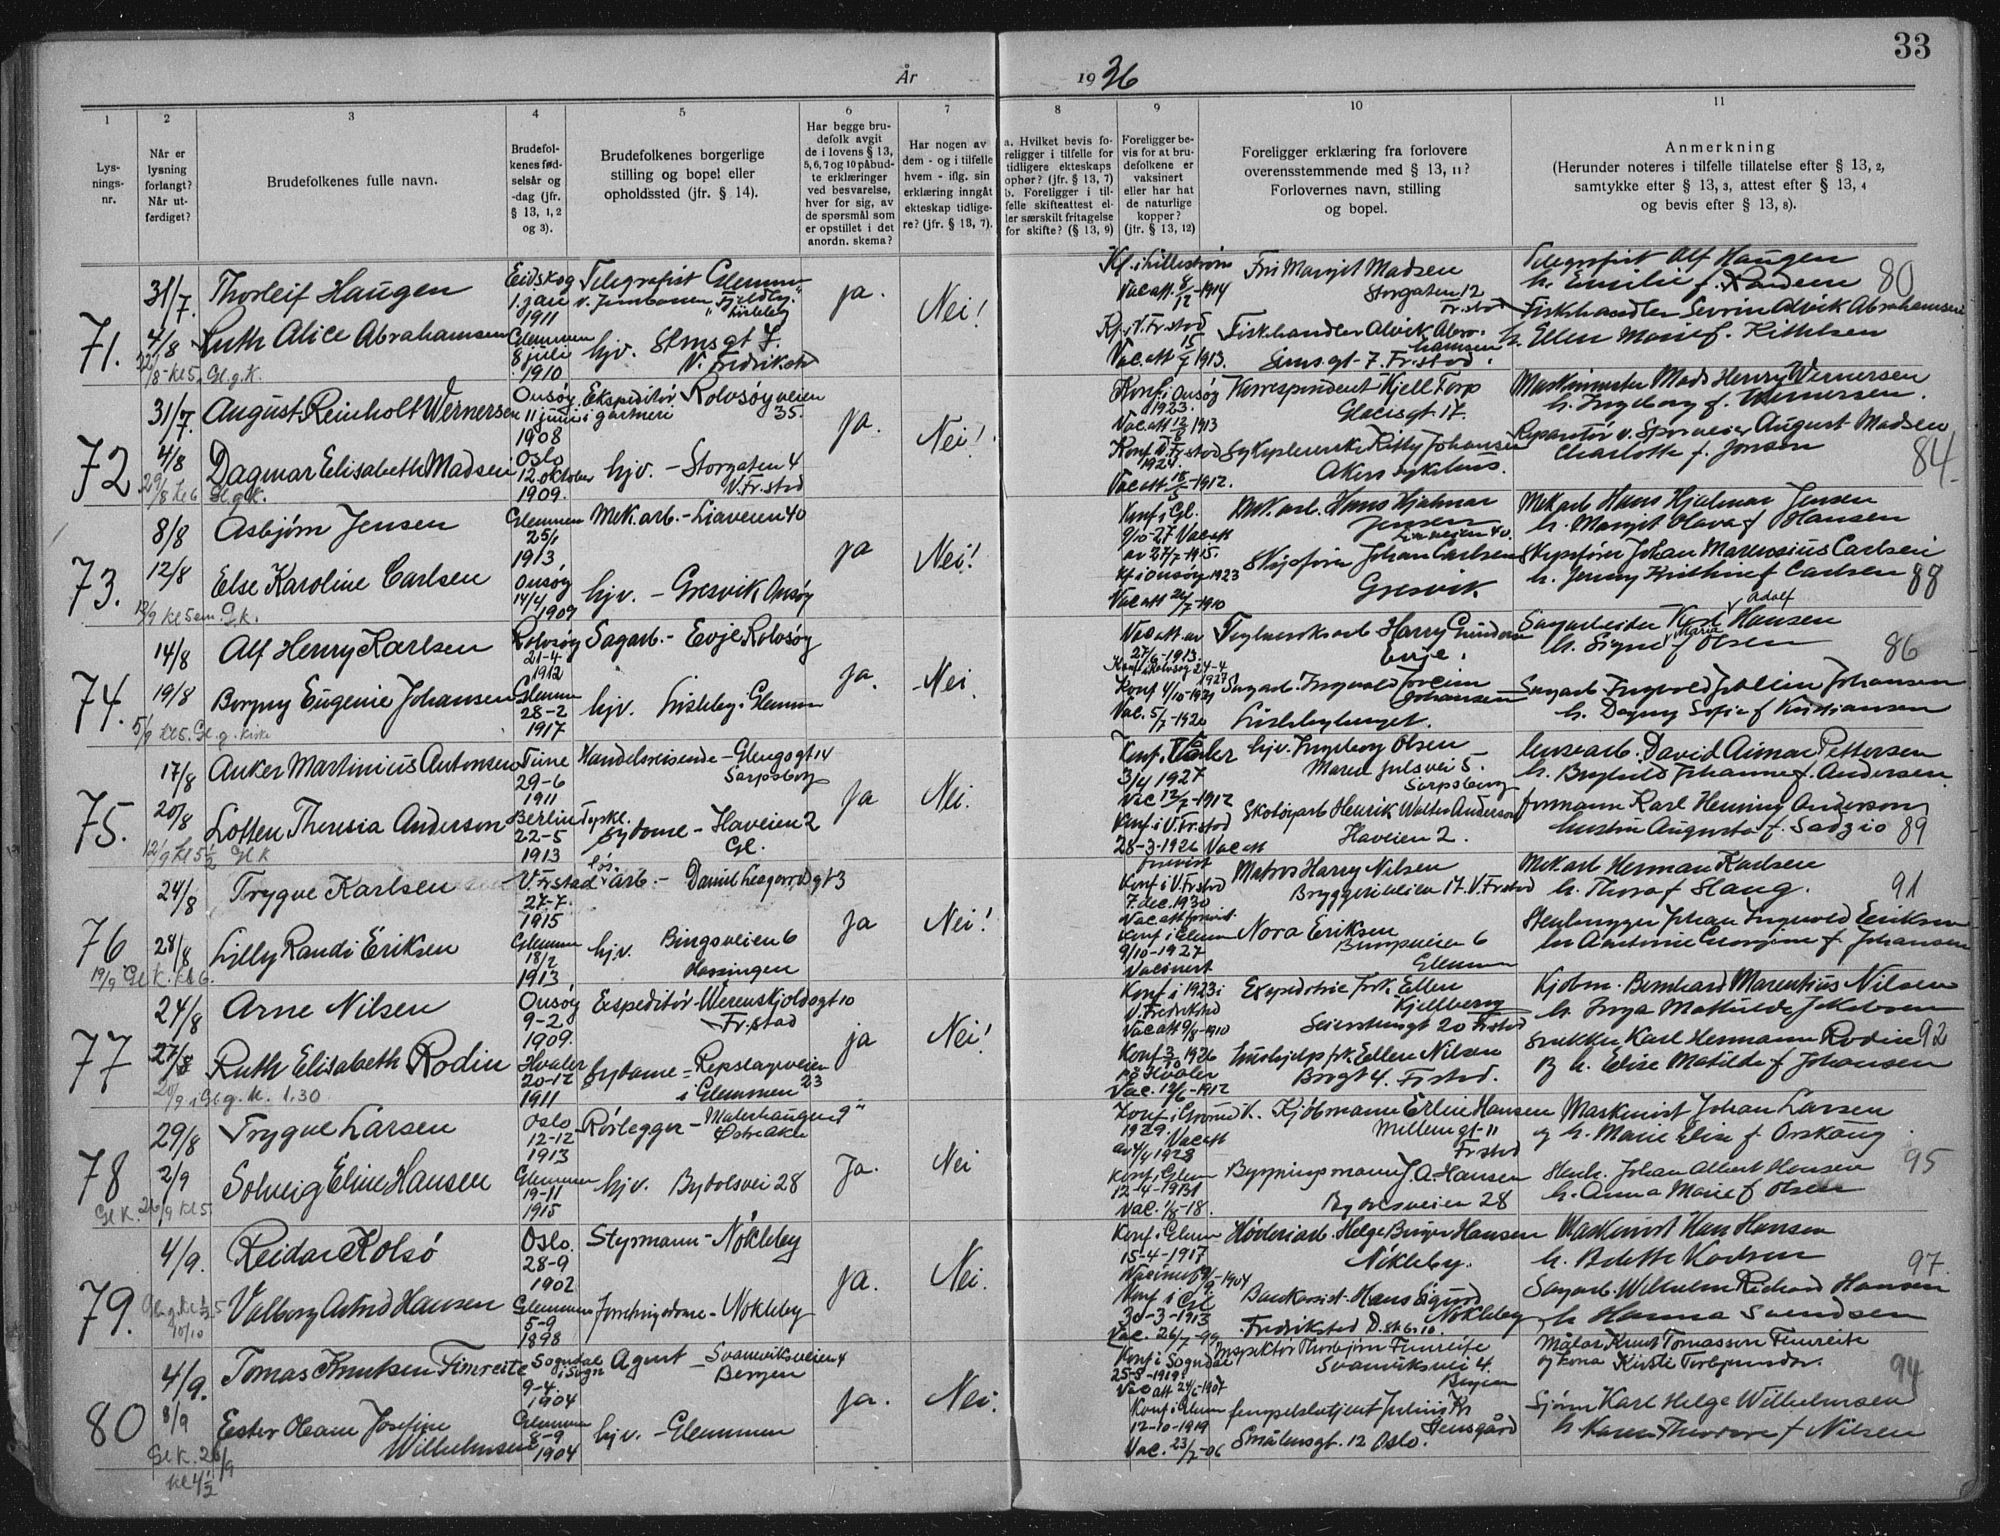 33
År 1936
1
Lys-
nings-
nr.
2
Når er
lysning
forlangt?
Når ut-
ferdiget?
3
Brudefolkenes fulle navn.
4
Brudefol-
kenes fød-
selsår og
-dag (jfr.
§ 13, 1, 2
og 3).
5
Brudefolkenes borgerlige
stilling og bopel eller
opholdssted (jfr. § 14).
6
Har begge bru-
defolk avgit
de i lovens § 13,
5, 6, 7 og 10 påbud-
te erklæringer
ved besvarelse,
hver for sig, av
de spørsmål som
er opstillet i det
anordn. skema?
7
Har nogen av
dem - og i tilfelle
hvem - iflg. sin
erklæring inngått
ekteskap tidlige-
re? (jfr. § 13, 7).
8
a. Hvilket bevis fo-
religger i tilfelle for
tidligere ekteskaps
ophør? (jfr. § 13, 7)
b. Foreligger i til-
felle skifteattest el-
ler særskilt fritagelse
for skifte? (§ 13, 9)
9
Foreligger be-
vis for at bru-
defolkene er
vaksinert
eller har hat
de naturlige
kopper?
(jfr. § 13, 12)
10
Foreligger erklæring fra forlovere
overensstemmende med § 13, 11?
Forlovernes navn, stilling
og bopel.
11
Anmerkning
(Herunder noteres i tilfelle tillatelse efter § 13, 2,
samtykke efter § 13, 3, attest efter § 13, 4
og bevis efter § 13, 8).
71.
31/7.
4/8
Gl. g. K.
Thorleif Haugen
Ruth Alice Abrahamsen
Eidskog
1. jan
1911
Glemmen
8 juli
1910
Telegrafist Glemmen
hjv. V. Fredrikstad
ja.
Nei!
Kf. i Lillestrøm
Vac att 1914
Kf. i V. Fr.stad
Vac. att 1913.
Frk Margit Madsen
Storgaten 12
Fr.stad
Fiskhandler Alvik Abra-
hamsen
gt. 7. Fr.stad.
Telegrafist Alf Haugen
h. Emilie f. Randem 80
Fiskhandler Severin Alvik Abrahamsen
h. Ellen Marie f. Kittelsen
72
31/7.
4/8
29/8 kl 6
Gl. g. K.
August Reinholt Wernersen
Dagmar Elisabeth Madsen
Onsøy
11 juni
1908
Oslo
12. oktober
1909.
Ekspeditør i gartneri Rolvsøyveien
35.
hjv. - Storgaten 4
V. Fr.stad
Ja.
Nei!
Konf. i Onsøy
1923.
Vac att 1913
Konf. V. Fr.stad
1924.
Vac att. 1912.
Korrespondent Kjell Torp
Glacisgt. 17.
Sykepleierske Kitty Johansen
Akers sykehus.
Maskinmester Mads Henry Wernersen
h. Ingeborg f. Wernersen.
Reparatør v. Sporveier August Madsen
Charlotte f. Jonsen 84.
73.
8/8
12/8
Asbjørn Jensen
Else Karoline Carlsen
Glemmen
25/1
1913
Onsøy
14/4
1909
Mek. arb. - Liaveien 40
hjv. - Gresvik, Onsøy
ja
Nei!
Konf. i Gl.
9/10-27 Vac att
av 27/7-1915.
Kf i Onsøy 1923
Vac att 1910
Mek. arb. Hans Hjalmar
Jensen
Liaveien 40
Skipsfører Johan Carlsen
Gresvik
Mek arb Hans Hjalmar Jensen
h. Margit Olava f Hansen
Skipsfører Johan Marensius Carlsen
h. Jenny Kathrine f Carlsen 88
74.
14/8
19/8
5/9 kl 5. Gl. g. kirke
Alf Henry Karlsen
Borgny Eugenie Johansen
Rolvsøy
21-4
1912
Glemmen
28-2
1917
Sagarb. - Evje Rolvsøy
hjv. Lisleby. Glemmen
Ja.
Nei
Vac att. av
27/6-1913.
Konf. i Rolvsøy 24-4
1927
Konf 4/10-1931
Vac. 5/7-1920
Teglverksarb Harry Gundersen
Evje.
Sagarb. Ingvald Joreim
Johansen
Lislebyberget.
Sagarbeider Karl Adolf Hansen
h. Signe Maria f Olsen 86
Sagarb. Ingvold Johansen
h. Dagny Sofie f Kristiansen
75.
17/8
20/8
12/9 kl 5 1/2 Gl K
Anker Martinius Antonsen
Lotten Theresia Anderson
Tune
29-6
1911
Berlin
22-5
1913
Handelsreisende - Glengsgt 14
Sarpsborg
Tyskl.
sydame - Haveien 2
Gl.
Ja
Nei.
Konf. Våler
3/4 1927
Vac 12/7-1912
Konf. i V. Fr.stad
28-3-1926 Vac att
hjv. Ingeborg Olsen
Maren Julsvei 5.
Sarpsborg
Skotøyarb Henrik Walter Anderson
Haveien 2.
David Pettersen
h. Brynhild Johanne f. Andersen.
formann Karl Henning Anderson
hustru Augusta f. Sadzio 89
76
24/8
28/8
19/9 Gl. K. kl. 6.
Trygve Karlsen
Lilly Randi Eriksen
V. Fr.stad
27-7.
1915
Glemmen
18/2
1913
løs arb. - gt 3
hjv. Bingsveien 6
Hassingen
ja
Nei!
Konf i V. Fr.stad
7. dec. 1930
Konf i Glemm
9/10-1927
Vacinert
Matros Harry Nilsen
Bryggeriveien 17. V. Fr.stad
Nora Eriksen
Bingsveien 6
Glemmen
Mek arb Herman Karlsen
h. Thora f Haug. 91
Stenhugger Johan Ingvold Eriksen
h. Antonie Georgine f. Johansen
77
24/8
27/8
20/9 i Gl. g. K. 1.30
Arne Nilsen
Ruth Elisabeth Rodin
Onsøy
9-2
1909.
Hvaler
20-12
1911
Ekspeditør - Werenskioldsgt 10
Fr.stad
Sydame - Repslagerveien
i Glemmen 23
ja
Nei!
Konf i 1923 i
V. Fredrikstad
Vac att 9/8-1910
Konf 1926
på Hvaler
Vac. 12/6-1912
Expeditrise frk. Ellen
Kjellberg
Seierstengt 20 Fr.stad
Hushjelp frk. Ellen Nilsen
Borgt 4. Fr.stad.
Kjøbm. Bernhard Marentius Nilsen
h. Inga Mathilde f Jakobsen
snekker Karl Hermann Rodin 92
og h. Elise Matilde f Johansen
78
29/8
2/9
Gl K. 26/9 kl 5
Trygve Larsen
Solveig Eline Hansen
Oslo
12-12
1913
Glemmen
19-11
1915
Rørlegger - Malerhaugen 9"
Østre Aker
hjv. Bydalsvei 28
Ja.
Nei
1929.
Vac att
av 4/4 1928
Konf. i Glem
12-4-1931
Vac. 1/8-18.
Kjøbmann Erling Hansen
Mellemgt. 11
Fr.stad
Bygningsmann J. A. Hansen
Bydalsveien 28
Maskinist Johan Larsen
og h. Marie Elise f Orskaug
Stenh. Johan Albert Hansen
h. Anna Marie f Olsen 95
79.
4/9.
10/10
Reidar Kolsø
Valborg Astrid Hansen
Oslo.
28-9
1902
Glemmen
5-9
1898
Styrmann - Nøkleby
forretningsdame - Nøkleby
ja.
Nei.
Konf i Glem
15-4-1917
Vacinert 1904
Konf i Gl
30-3-1913
Vac. 26/7-99
Helge Birger Hansen
Nøkleby.
Bankassist. Hans Sigurd
Nøkleby
Fredrikstad
Maskinist Hans Hansen
h. Bolette 97
Sagarb. Wilhelm Richard Hansen
h Hanna Svendsen
80
4/9.
8/9
Gl K. 26/9
kl 4 1/2
Tomas Knutsen Fimreite
Ester Oleane Josefine
Wilhelmsen
Sogndal
i Sogn
9-4.
1904
Glemmen
8-9
1904
Agent - Svaneviksveien 4
Bergen
hjv. - Glemmen
ja.
Nei.
Konf i Sogndal
25-5-1919
Vac att 24/6-1907
Konf i Glem
12-10-1919
Vac. 23/7-06
Inspektør Thorbjørn Fimreite
Svaneviksvei 4.
Bergen
fengselsbetjent Julius Kr
Stensgård
Smålensgt. 12 Oslo.
Maler Knut Tomasson Fimreite
og kona Kirsti Torbjørnsdtr. 94
Sjøm Karl Helge Wilhelmsen
h. Karen Theodora f Nilsen